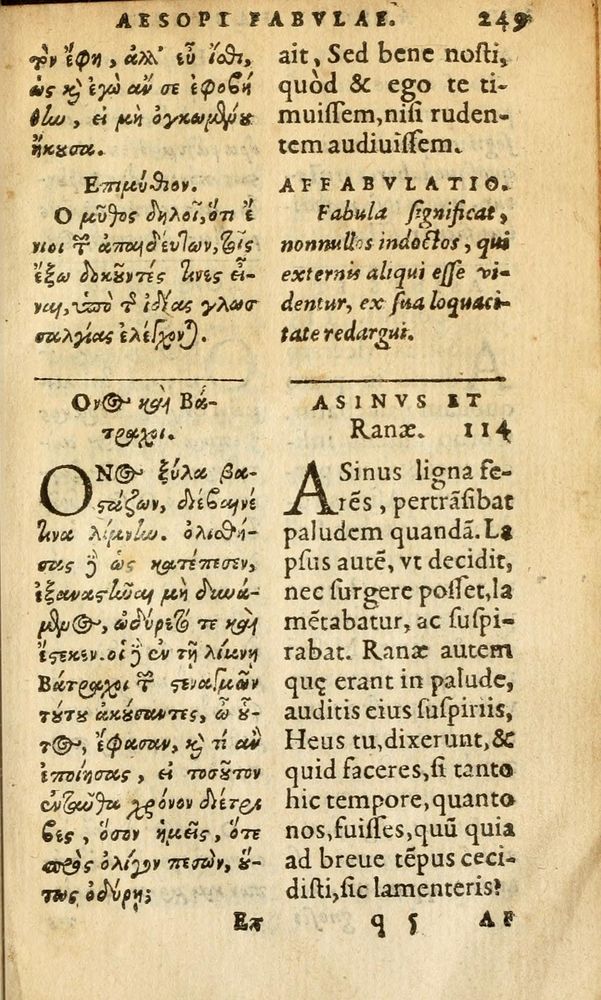 AESOPI FABVLAE. 249
τὸν ἔφη, ἀλλ' εὖ ἴσθι,
ὡς κὶ ἐγὼ ἄν σε ἐφοβή
θην, εἰ μὴ ὀγκωμένου
ἤκουσα.
Επιμύθιον.
Ο μῦθος δηλοῖ, ὅτι ἔ
νιοι τῶν ἀπαιδεύτων, τοῖς
ἔξω δοκοῦντές τινες εἶ-
ναι, ὑπὸ τῆς ἰδίας γλωσ
σαλγίας ἐλέγχονται.
Ονος καὶ Βά-
τραχοι.
ΟΝος ξύλα βα-
στάζων, διέβαινέ
τινα λίμνην. ὀλισθή-
σας δὲ ὡς κατέπεσεν,
ἐξαναστῆναι μὴ δυνά-
μενος, ὠδύρετό τε καὶ
ἔστενεν. οἱ δὲ ἐν τῇ λίμνῃ
Βάτραχοι τῶν στεναγμῶν
τούτου ἀκούσαντες, ὦ οὗ-
τος, ἔφασαν, κὶ τί ἂν
ἐποίησας, εἰ τοσοῦτον
ἐνταῦθα χρόνον διέτρι
βες, ὅσον ἡμεῖς, ὅτε
πρὸς ὀλίγον πεσὼν, οὕ-
τως ὀδύρῃ;
Επ
ait, Sed bene nosti,
quòd & ego te ti-
muissem, nisi ruden-
tem audiuissem.
AFFABVLATIO.
Fabula significat,
nonnullos indoctos, qui
externis aliqui esse vi-
dentur, ex sua loquaci-
tate redargui.
ASINVS ET
Ranæ. 114
ASinus ligna fe-
rēs, pertrāsibat
paludem quandā. La
psus autē, vt decidit,
nec surgere posset, la
mētabatur, ac suspi-
rabat. Ranæ autem
quę erant in palude,
auditis eius suspiriis,
Heus tu, dixerunt, &
quid faceres, si tanto
hic tempore, quanto
nos, fuisses, quū quia
ad breue tēpus ceci-
disti, sic lamenteris?
q 5 AF